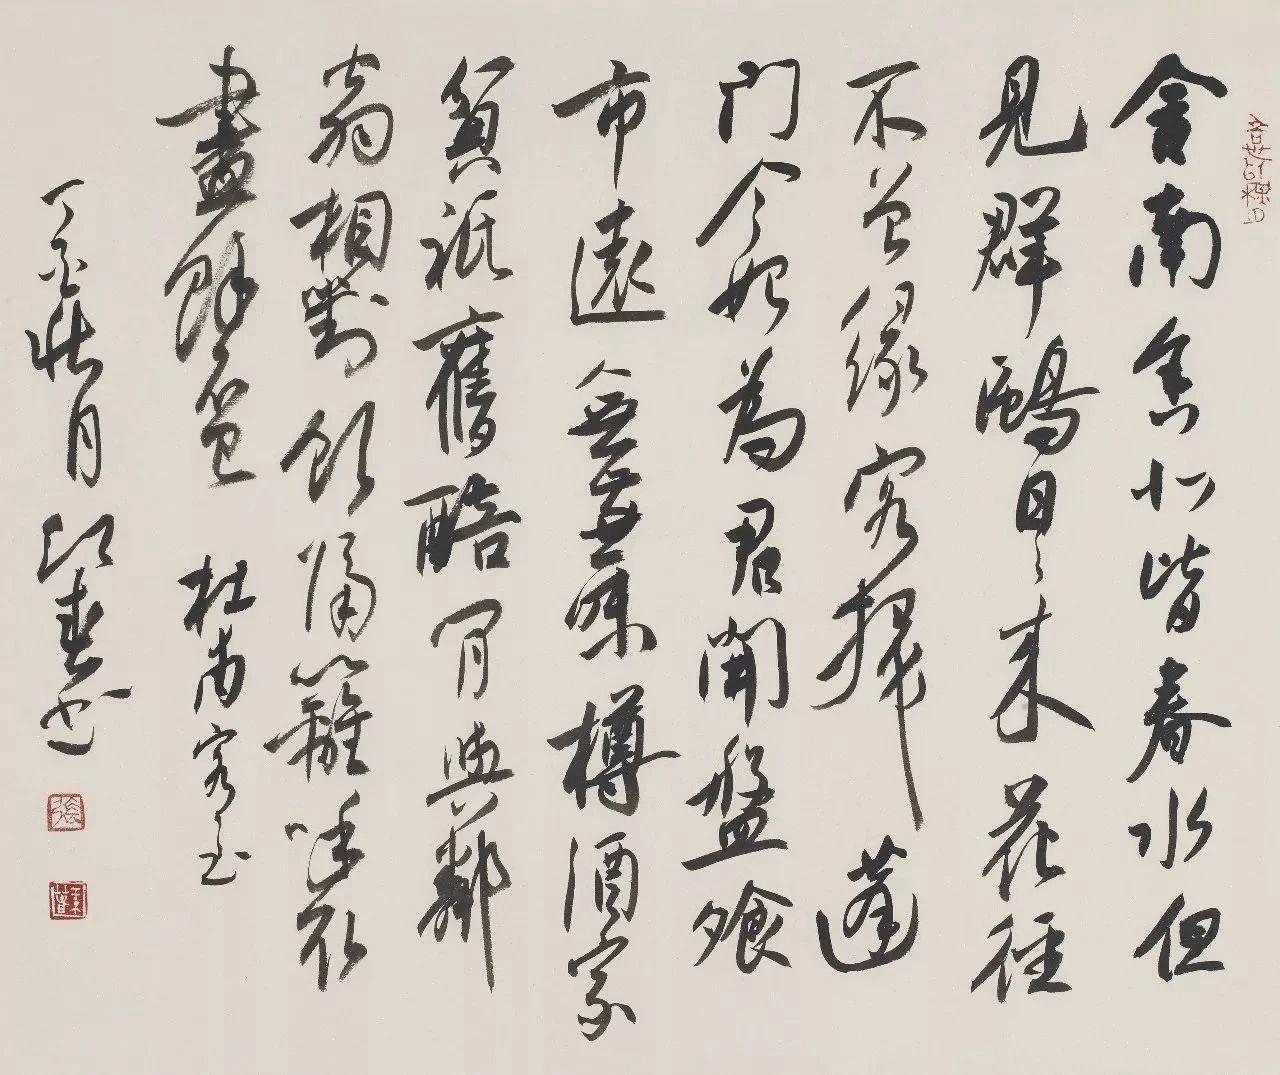 舍南舍北皆春水但
見群鷗日々来花徑
不曾缘客掃蓬
门今始為君開盤飧
市遠無兼味樽酒家
貧祗舊醅肯與鄰
翁相對飲隔籬呼取
盡餘盃 杜甫客至
丁 月 江春书
張